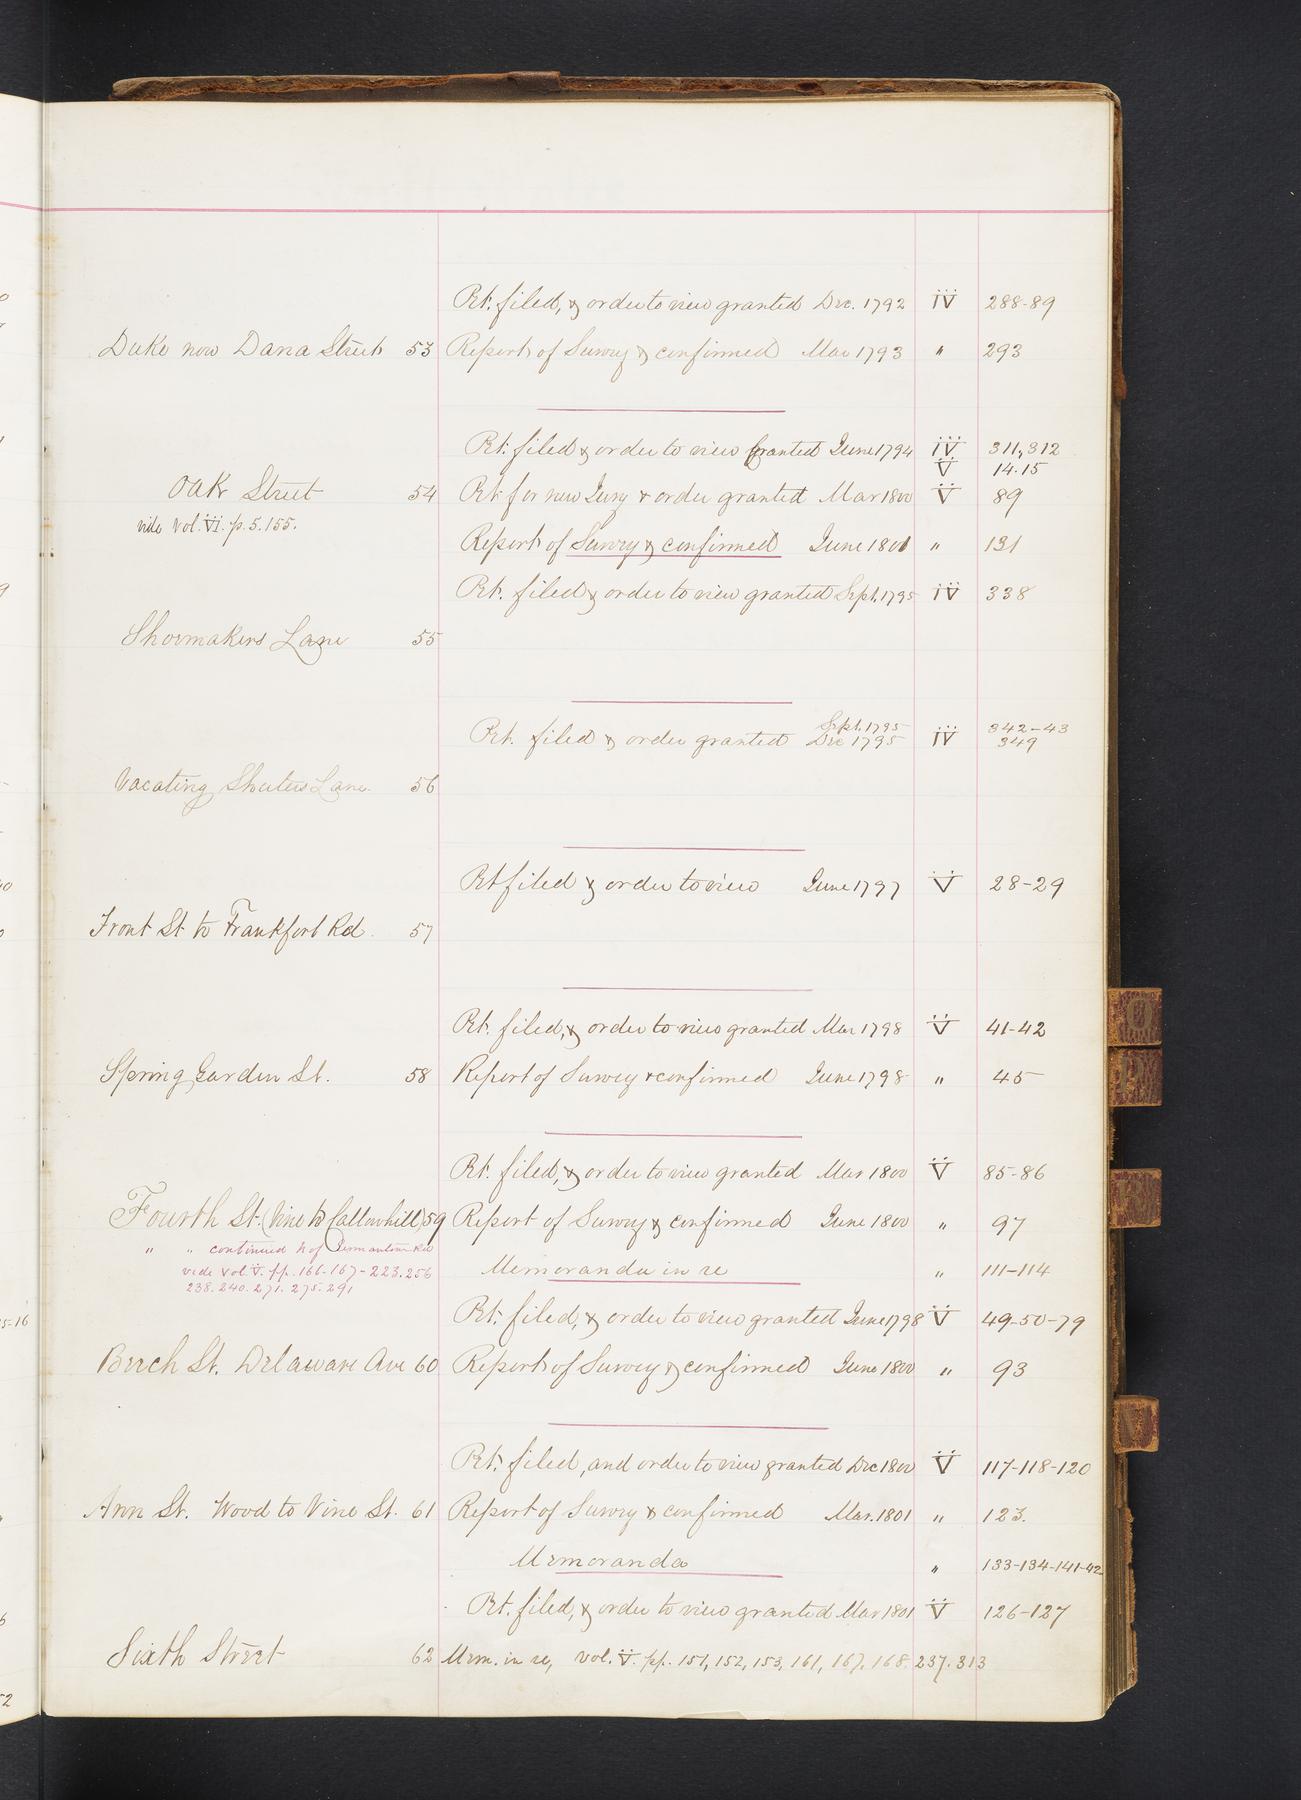 Pet. filed, & order to view granted Dec. 1792 IV 288-89
Duke now Dana Street 53 Report of Survey & confirmed Mar 1793 " 293
Pet. filed & order to view granted June 1794 IV 311, 312
V 14.15
Oak Street 54 Pet. for new Jury & order granted Mar 1800 V 89
vide Vol. VI. p. 5. 155.
Report of Survey & confirmed June 1801 " 131
Pet. filed & order to view granted Sept. 1795 IV 338
Shoemakers Lane 55
Sept. 1795 342-43
Pet. filed & order granted Dec 1795 IV 349
Vacating Shuters Lane. 56
Pet filed & order to view June 1797 V 28-29
Front St. to Frankfort Rd. 57
Pet. filed, & order to view granted Mar 1798 V 41-42
Spring Garden St. 58 Report of Survey & confirmed June 1798 " 45
Pet. filed, & order to view granted Mar 1800 V 85-86
Fourth St. (Vine to Callowhill) 59 Report of Survey & confirmed June 1800 " 97
" " continued N of Germantown Rd
vide Vol. V. pp. 166-167-223.256
238.240.271.275.291
Memoranda in re " 111-114
Pet. filed, & order to view granted June 1798 V 49-50-79
Beach St. Delaware Ave 60 Report of Survey & confirmed June 1800 " 93
Pet. filed, and order to view granted Dec 1800 V 117-118-120
Ann St. Wood to Vine St. 61 Report of Survey & confirmed Mar. 1801 " 123.
Memoranda " 133-134-141-42
Pet. filed, & order to view granted Mar 1801 V 126-127
Sixth Street 62 Mem. in re, vol. V. pp. 151, 152, 153, 161, 167, 168, 237. 313